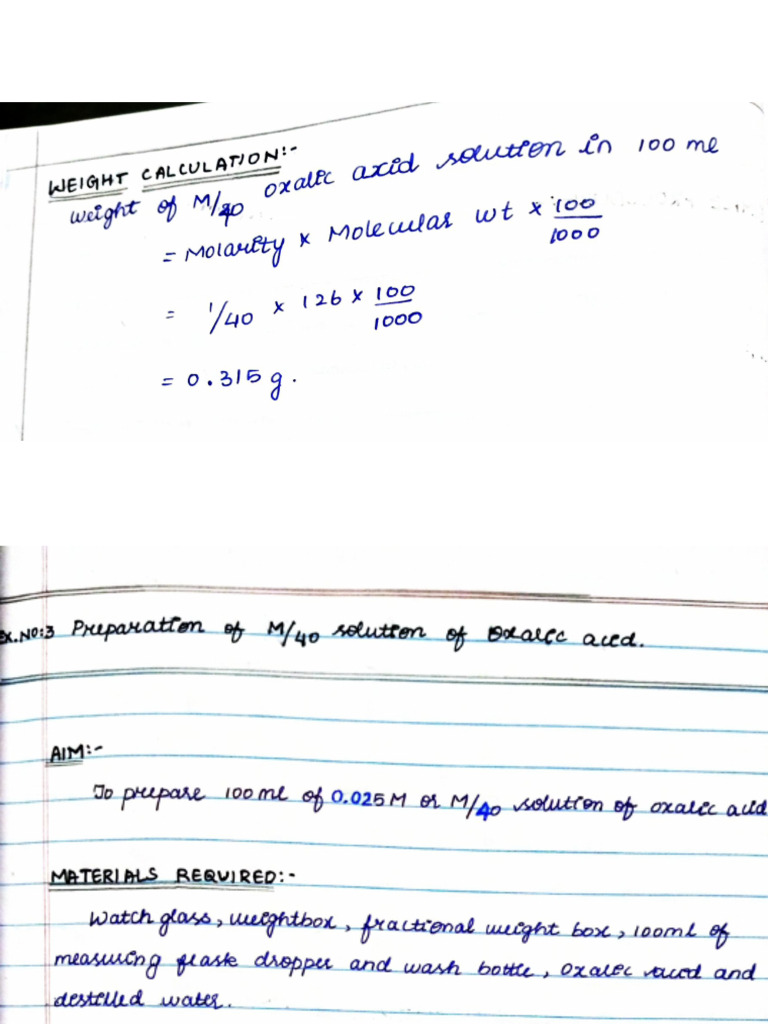 WEIGHT CALCULATION:-
weight of M/40 oxalic axid solution in 100 ml
= Molarity x Molecular wt x 100/1000
= 1/40 x 126 x 100/1000
= 0.315 g.
Ex.NO:3 Preparation of M/40 solution of Oxalic acid.
AIM:-
To prepare 100 ml of 0.025 M or M/40 solution of oxalic acid
MATERIALS REQUIRED:-
Watch glass, weightbox, fractional weight box, 100ml of
measuring flask dropper and wash bottle, oxalic acid and
destilled water.